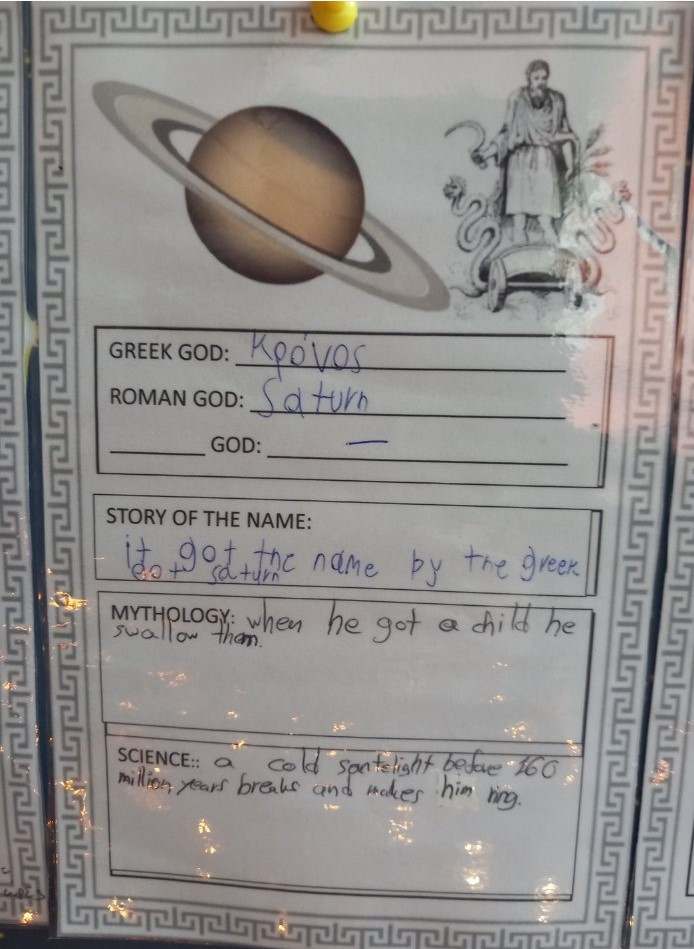 GREEK GOD: Κρόνος
ROMAN GOD: Saturn
GOD: —
STORY OF THE NAME:
it got the name by the greek
got saturn
MYTHOLOGY: when he got a child he
swallow them.
SCIENCE:: a cold santelight before 160
million years breaks and makes him ring.